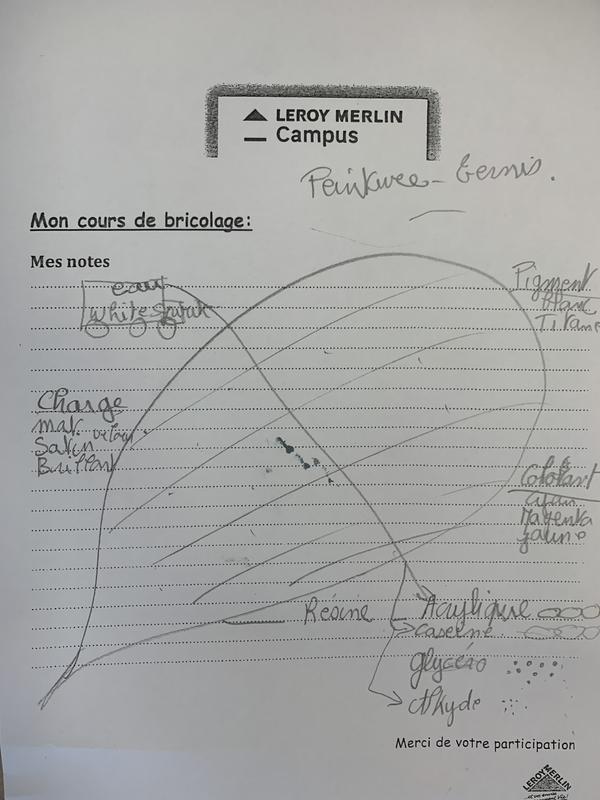 LEROY MERLIN
Campus
Peinture - Vernis.
Mon cours de bricolage:
Mes notes
eau
white spirit
Pigment
blanc
Titane
Charge
mat
Satin velour
Brillant
Colorant
Cyan
Magenta
jaune
Résine
Acrylique
Caseine
glycéro
Alkyde
Merci de votre participation
LEROY MERLIN